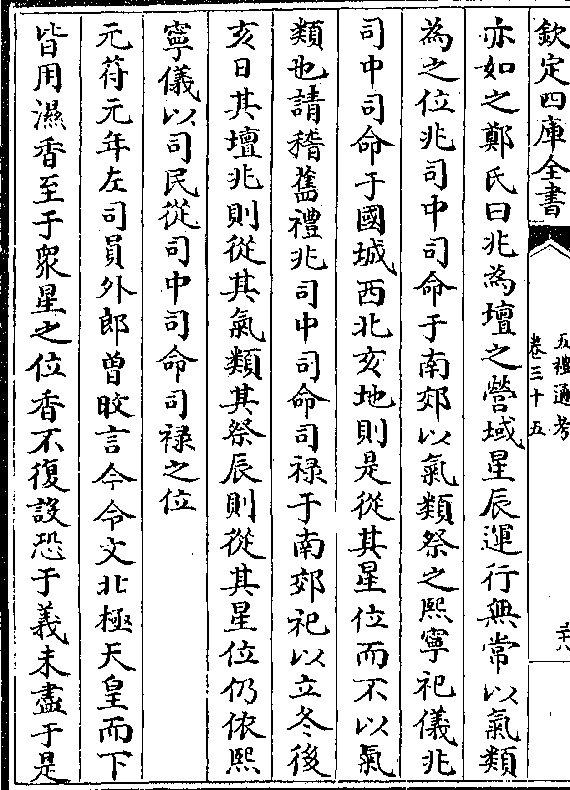 欽定四庫全書
五禮通考
卷三十五
亦如之鄭氏曰兆為壇之營域星辰運行無常以氣類
為之位兆司中司命于南郊以氣類祭之熙寧祀儀兆
司中司命于國城西北亥地則是從其星位而不以氣
類也請稽舊禮兆司中司命司禄于南郊祀以立冬後
亥日其壇兆則從其氣類其祭辰則從其星位仍依熙
寧儀以司民從司中司命司禄之位
元符元年左司員外郎曾旼言今令文北極天皇而下
皆用濕香至于衆星之位香不復設恐于義未盡于是